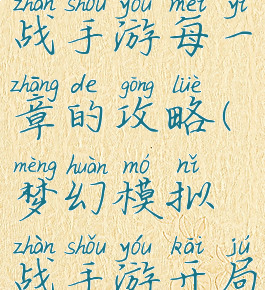 zhàn shǒu yóu měi yī
战手游每一
zhāng de gōng lüè
章的攻略(
mèng huàn mó nǐ
梦幻模拟
zhàn shǒu yóu kāi jú
战手游开局